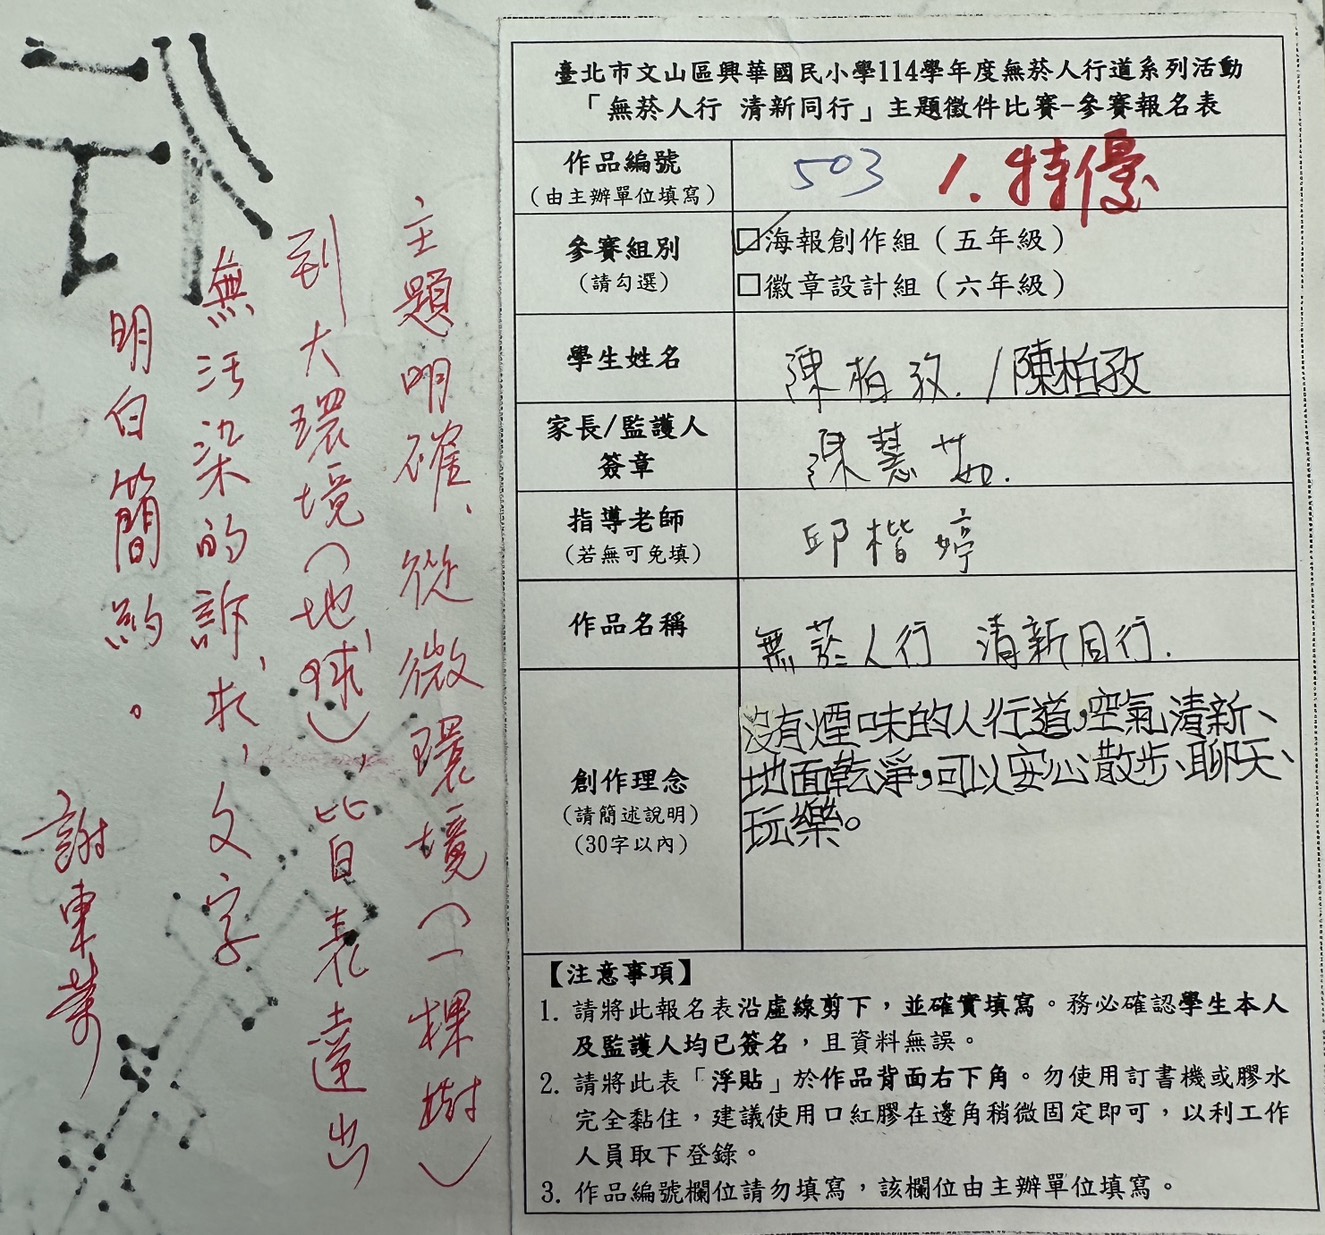 臺北市文山區興華國民小學114學年度無菸人行道系列活動
「無菸人行 清新同行」主題徵件比賽-參賽報名表
作品編號
(由主辦單位填寫)
503 1.特優
參賽組別
(請勾選)
☑海報創作組(五年級)
□徽章設計組(六年級)
學生姓名
陳柏孜./陳柏孜
家長/監護人
簽章
陳慧茹.
指導老師
(若無可免填)
邱楷婷
作品名稱
無菸人行 清新同行.
創作理念
(請簡述說明)
(30字以內)
沒有煙味的人行道,空氣清新、
地面乾淨,可以安心散步、聊天、
玩樂。
【注意事項】
1. 請將此報名表沿虛線剪下,並確實填寫。務必確認學生本人
及監護人均已簽名,且資料無誤。
2. 請將此表「浮貼」於作品背面右下角。勿使用訂書機或膠水
完全黏住,建議使用口紅膠在邊角稍微固定即可,以利工作
人員取下登錄。
3. 作品編號欄位請勿填寫,該欄位由主辦單位填寫。
主題明確、從微環境(一棵樹)
到大環境(地球),皆表達出
無污染的訴求,文字
明白簡約。
謝東